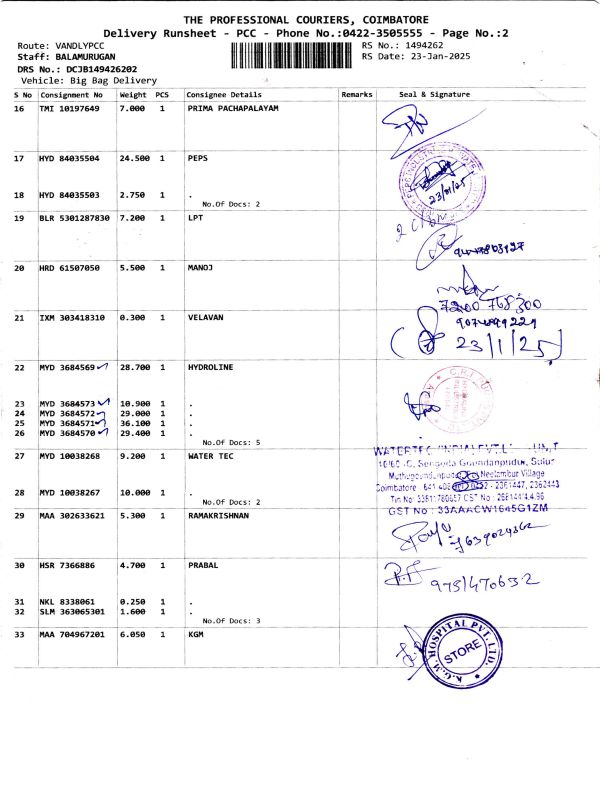 THE PROFESSIONAL COURIERS, COIMBATORE
Delivery Runsheet - PCC - Phone No.:0422-3505555 - Page No.:2
Route: VANDLYPCC RS No.: 1494262
Staff: BALAMURUGAN RS Date: 23-Jan-2025
DRS No.: DCJB149426202
Vehicle: Big Bag Delivery
S No Consignment No Weight PCS Consignee Details Remarks Seal & Signature
16 TMI 10197649 7.000 1 PRIMA PACHAPALAYAM
17 HYD 84035504 24.500 1 PEPS
23/01/25
18 HYD 84035503 2.750 1 .
No.Of Docs: 2
19 BLR 5301287830 7.200 1 LPT
20 HRD 61507050 5.500 1 MANOJ
7200 768300
21 IXM 303418310 0.300 1 VELAVAN
23/1/25
22 MYD 3684569 28.700 1 HYDROLINE
23 MYD 3684573 10.900 1 .
24 MYD 3684572 29.000 1 .
25 MYD 3684571 36.100 1 .
26 MYD 3684570 29.400 1 .
No.Of Docs: 5
27 MYD 10038268 9.200 1 WATER TEC
Neelambur Village
28 MYD 10038267 10.000 1 .
No.Of Docs: 2
GST No : 33AAACW1645G1ZM
29 MAA 302633621 5.300 1 RAMAKRISHNAN
30 HSR 7366886 4.700 1 PRABAL
31 NKL 8338061 0.250 1 .
32 SLM 363065301 1.600 1 .
No.Of Docs: 3
33 MAA 704967201 6.050 1 KGM
K.G.M. HOSPITAL PVT. LTD.
STORE